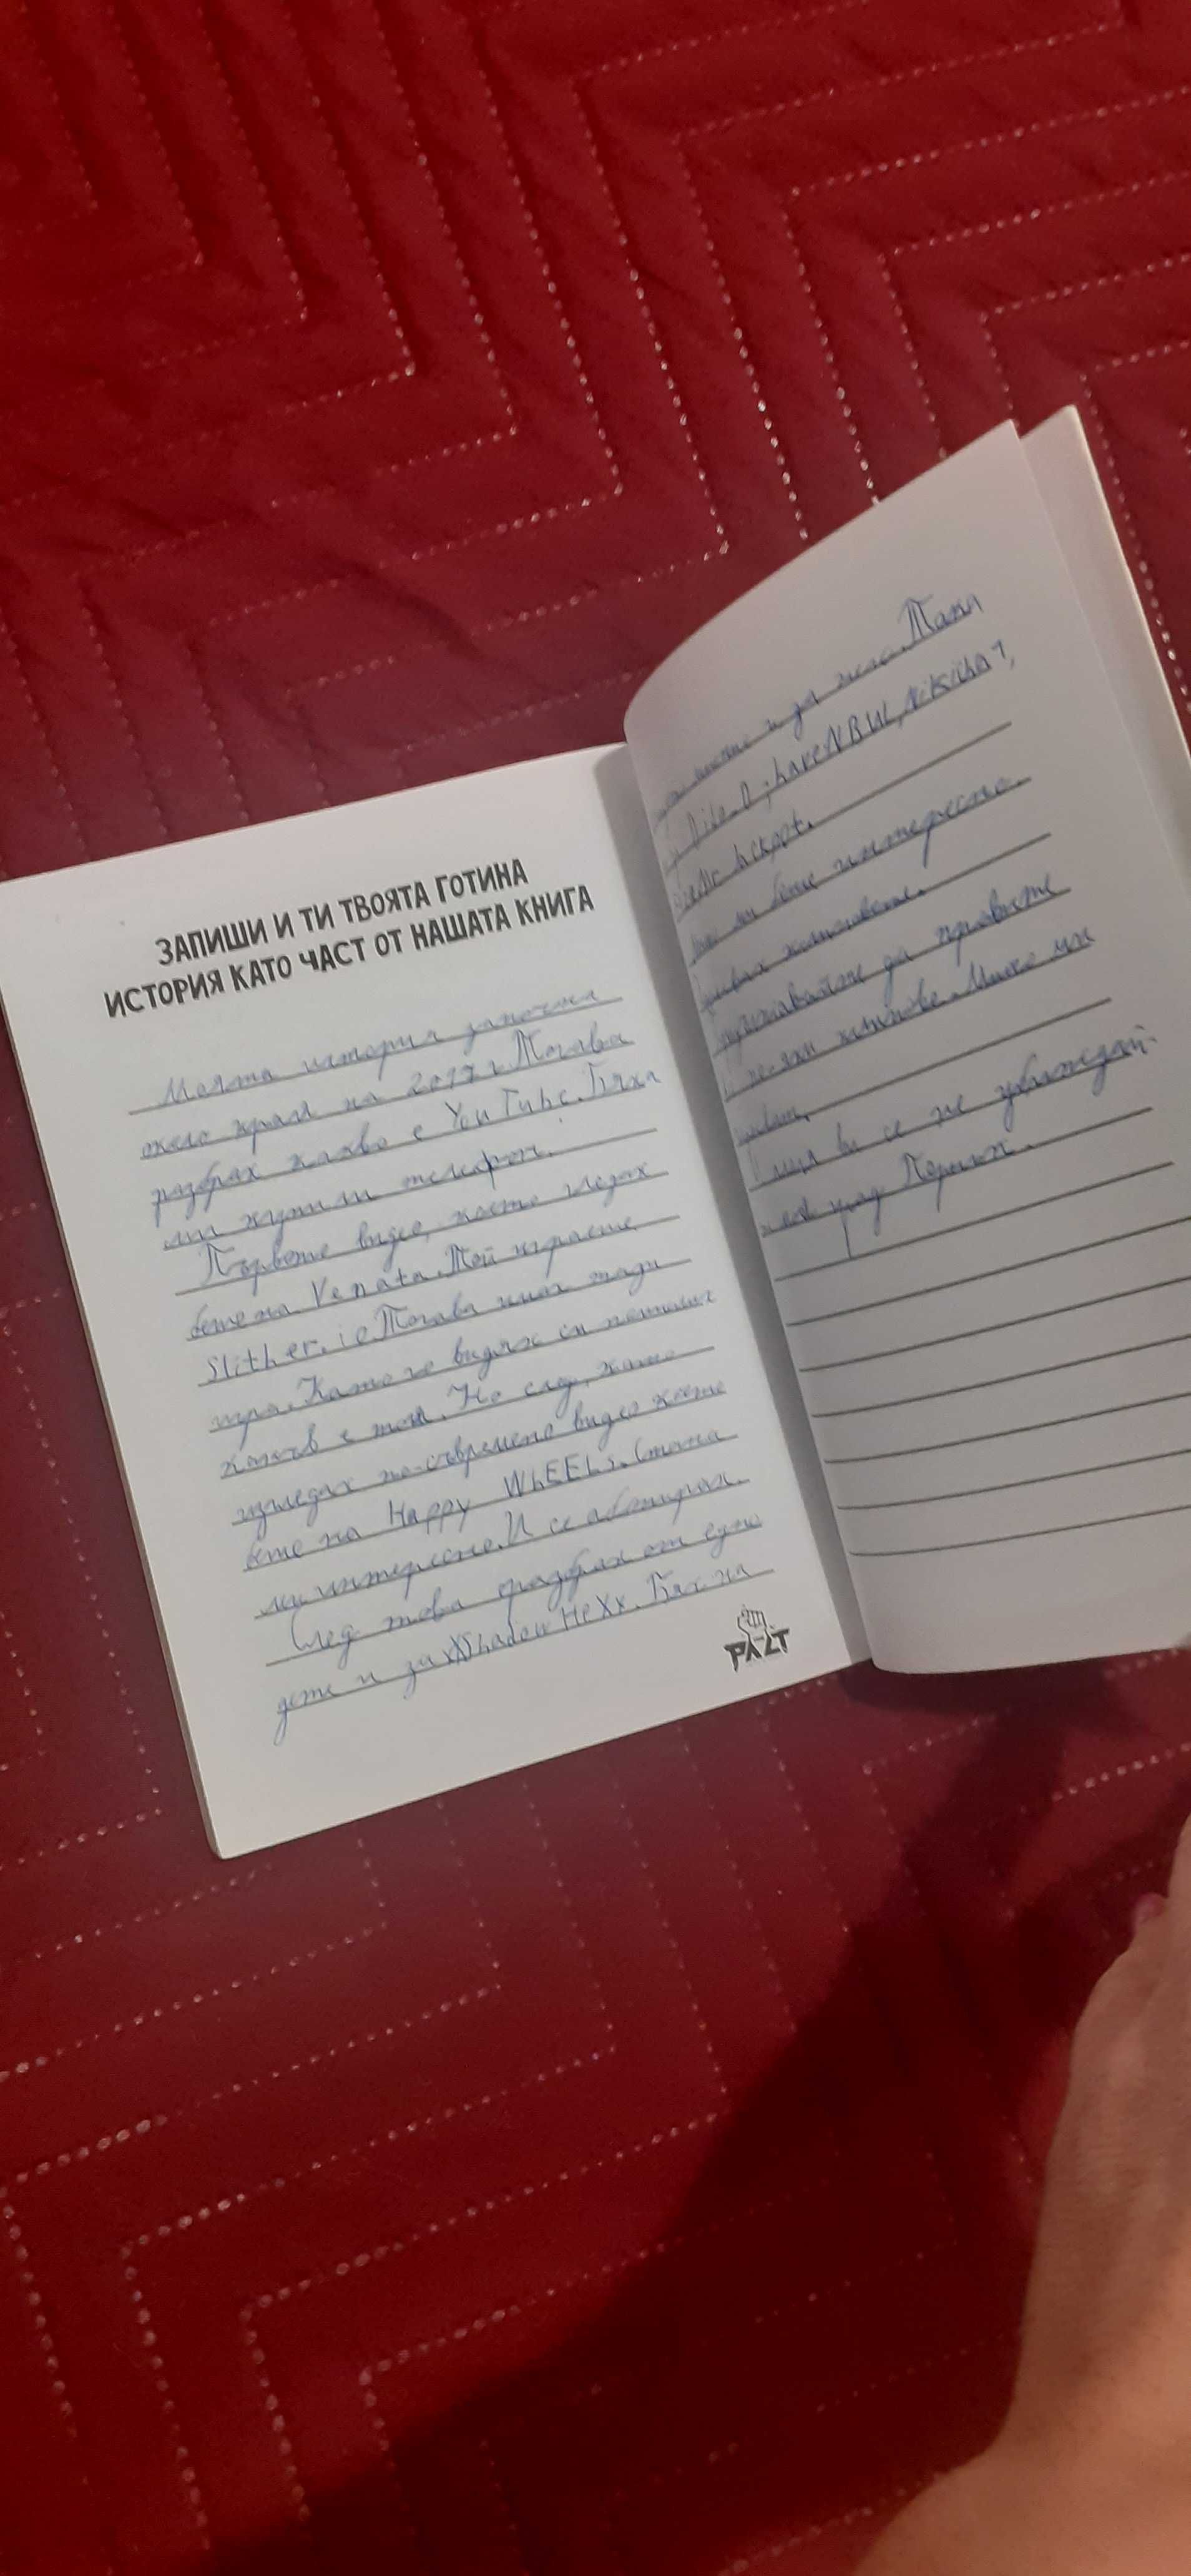 ЗАПИШИ И ТИ ТВОЯТА ГОТИНА
ИСТОРИЯ КАТО ЧАСТ ОТ НАШАТА КНИГА
Моята история започна
около края на 2017 г. Тогава
разбрах какво е YouTube. Бяха
ми купили телефон.
Първото видео, което гледах
беше на Venata. Той играеше
Slither.io Тогава имах тази
игра. Като го видях си помислих
колко е тъп. Но след, като
изгледах по-съвремено видео което
беше на Happy WhEELs. Стана
ми интересно. И се абонирах.
След това разбрах от едно
дете и за xXShadowHeXx. Бях на
и за него. Така
NBW, Nikicha7,
ми беше интересно.
клиповете.
да правите
клипове. Много ми
ви се не убеждай-
град Перник.
РАZТ